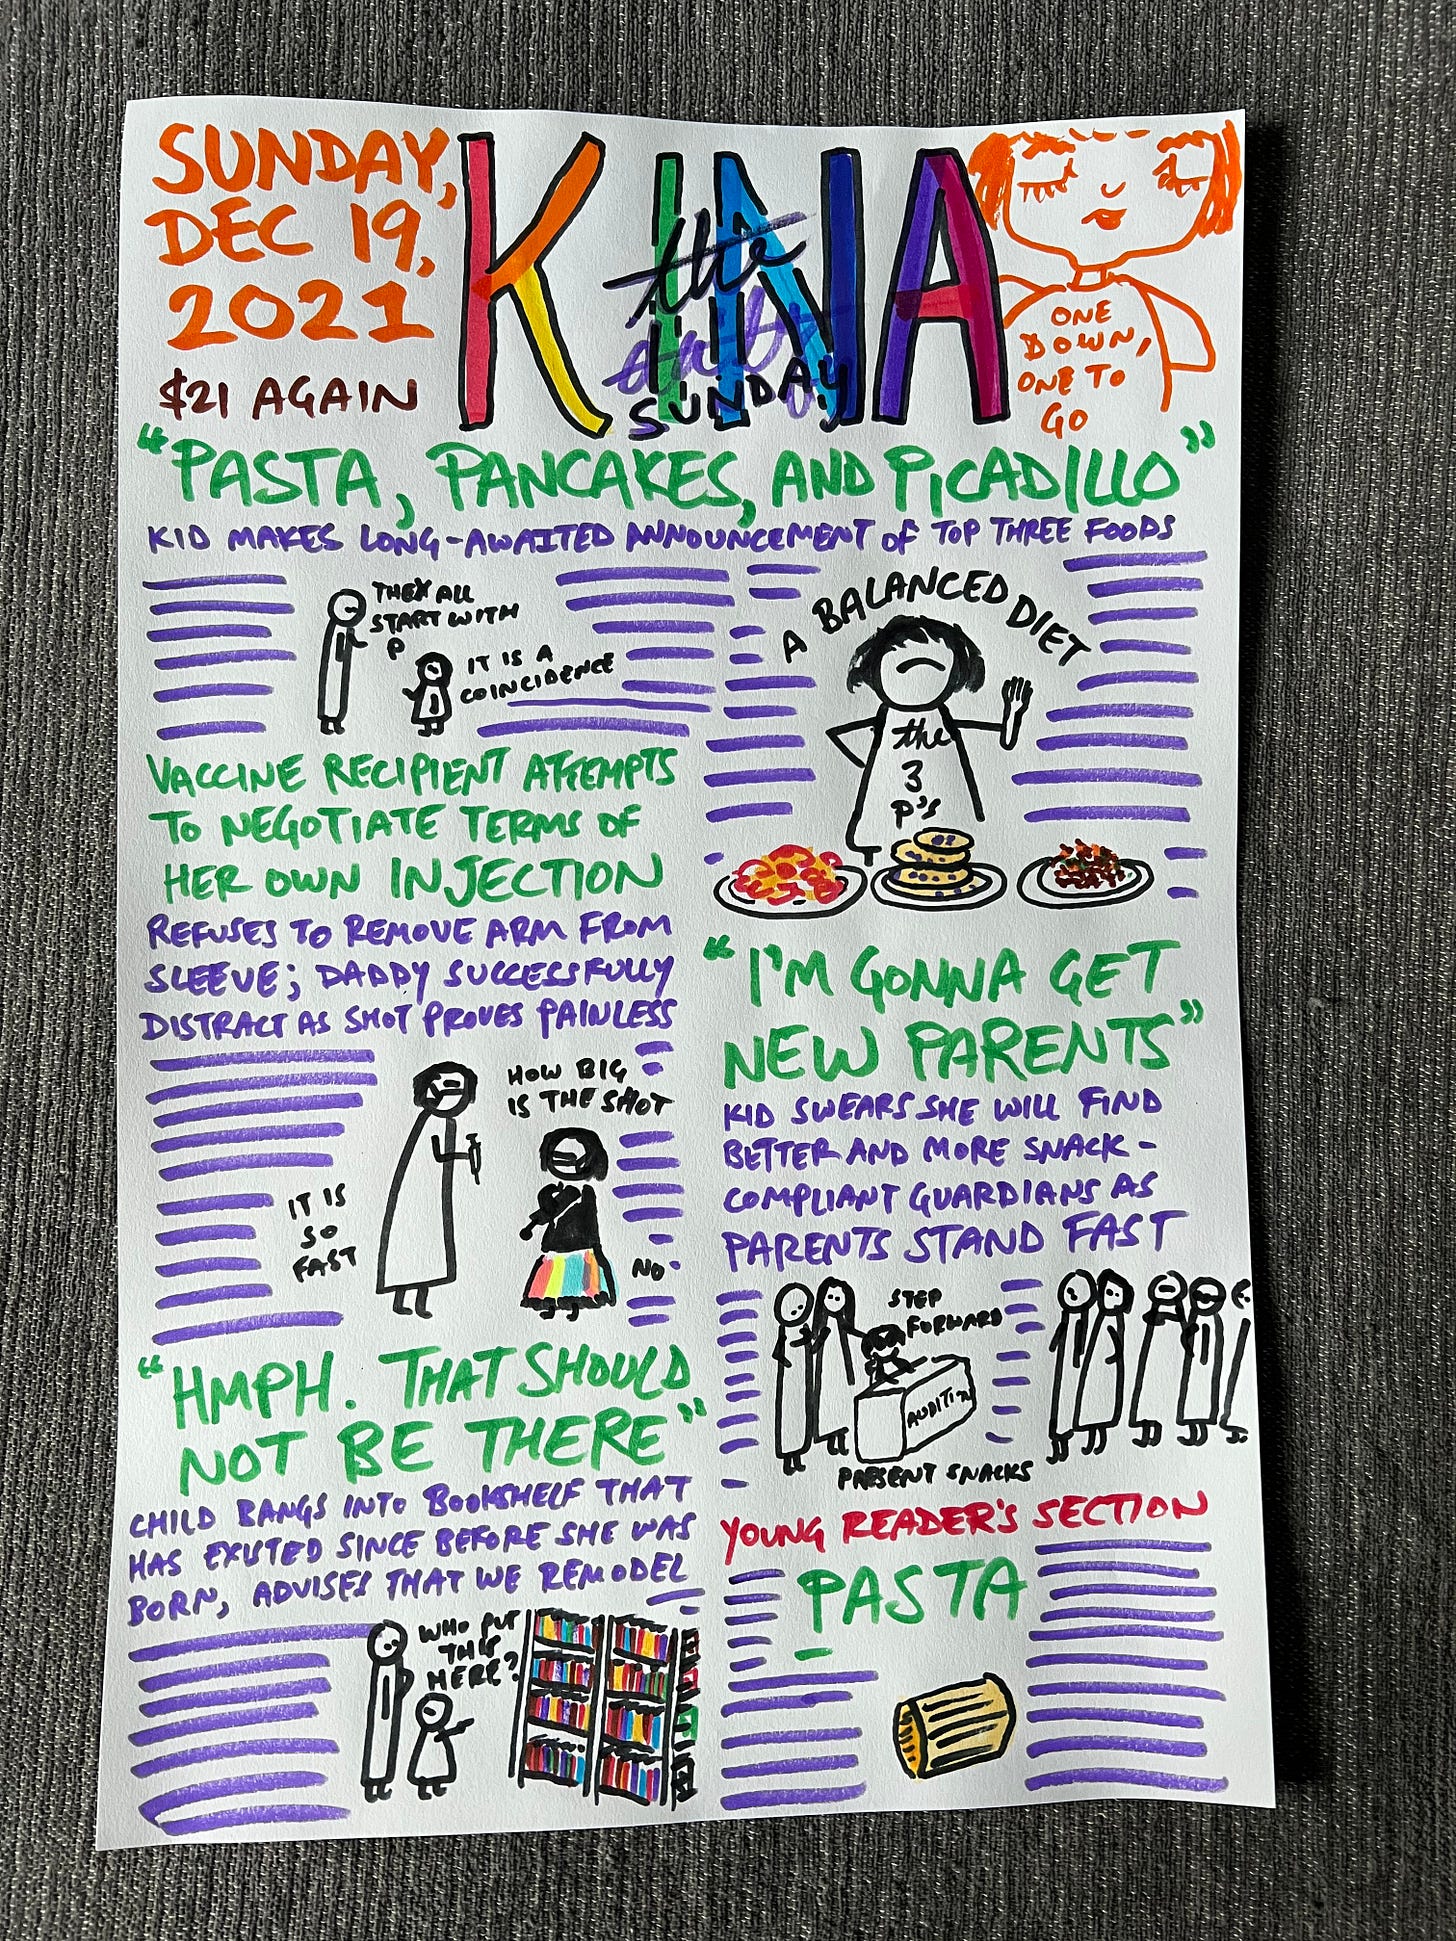 SUNDAY,
DEC 19,
2021
$21 AGAIN
KINA
the
daily
SUNDAY
ONE
DOWN,
ONE TO
GO
"PASTA, PANCAKES, AND PICADILLO"
KID MAKES LONG-AWAITED ANNOUNCEMENT OF TOP THREE FOODS
THEY ALL
START WITH
P
IT IS A
COINCIDENCE
A BALANCED DIET
the
3
P's
VACCINE RECIPIENT ATTEMPTS
TO NEGOTIATE TERMS OF
HER OWN INJECTION
REFUSES TO REMOVE ARM FROM
SLEEVE; DADDY SUCCESSFULLY
DISTRACT AS SHOT PROVES PAINLESS
HOW BIG
IS THE SHOT
IT IS
SO
FAST
NO
"I'M GONNA GET
NEW PARENTS"
KID SWEARS SHE WILL FIND
BETTER AND MORE SNACK-
COMPLIANT GUARDIANS AS
PARENTS STAND FAST
STEP
FORWARD
AUDITION
PRESENT SNACKS
"HMPH. THAT SHOULD
NOT BE THERE"
CHILD BANGS INTO BOOKSHELF THAT
HAS EXISTED SINCE BEFORE SHE WAS
BORN, ADVISES THAT WE REMODEL
WHO PUT
THIS
HERE?
YOUNG READER'S SECTION
PASTA